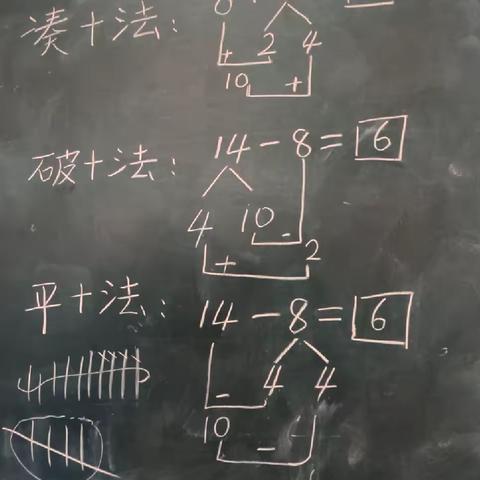 凑十法:
2 4
+
10 +
破十法: 14-8=6
4 10
-
+ 2
平十法: 14-8=6
4 4
-
10
-